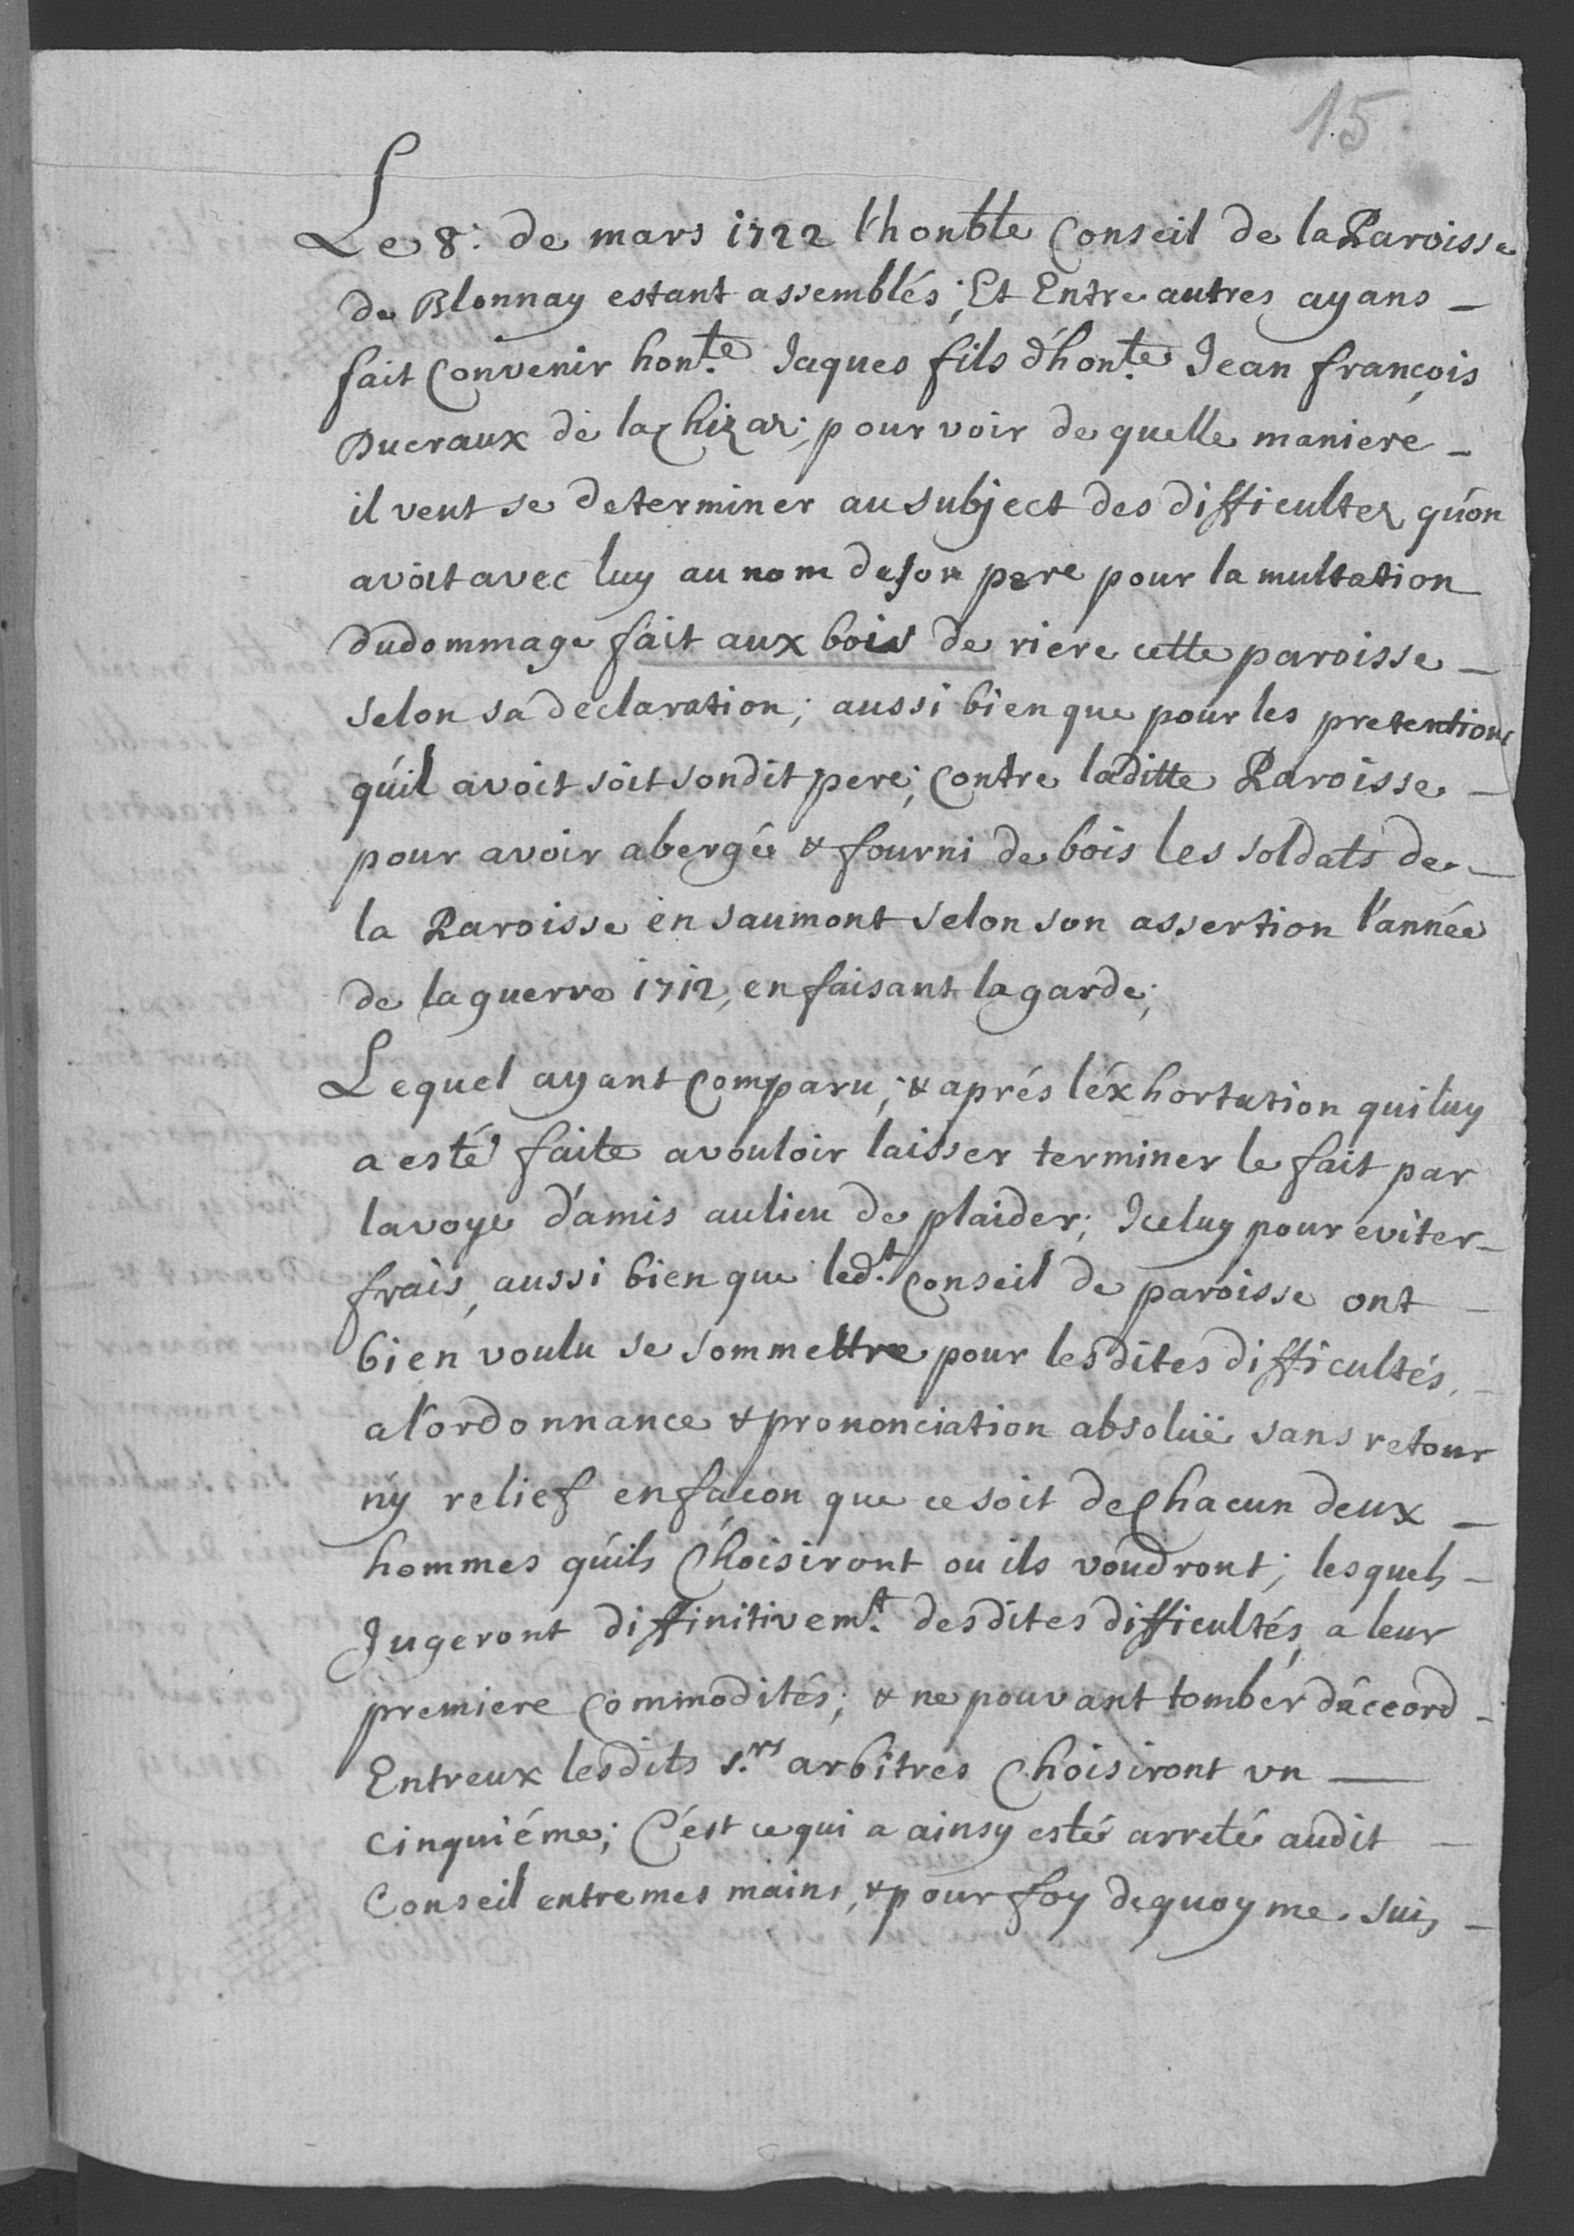 15
Le 8: de mars 1722 l'honble Conseil de la Paroisse
de Blonnay estant assemblés; Et Entre autres ayans –
fait Convenir hon.te Jaques fils d'hon.te Jean françois
Ducraux de la Chizaz; pour voir de quelle maniere –
il veut se determiner au subject des difficultez qu'on
avoit avec luy au nom de son pere pour la multation
du dommage fait aux bois de riere cette paroisse –
selon sa declaration; aussi bien que pour les pretentions
qu'il avoit soit sondit pere; Contre laditte Paroisse –
pour avoir abergé & fourni de bois les soldats de –
la Paroisse en saumont selon son assertion l'année
de la guerre 1712, en faisant la garde;
Lequel ayant Comparu; & aprés l'éxhortation qui luy
a esté faite a vouloir laisser terminer le fait par
la voye d'amis au lieu de plaider; Iceluy pour eviter –
frais, aussi bien que led.t Conseil de paroisse ont –
bien voulu se sommettre pour lesdites difficultés, –
a l'ordonnance & prononciation absoluë sans retour
ny relief en façon que ce soit de Chacun deux –
hommes qu'ils Choisiront ou ils voudront; lesquels –
Jugeront diffinitivem.t desdites difficultés a leur
premiere Commodités; & ne pouvant tomber d'accord –
Entreux lesdits s.rs arbitres Choisiront un —
cinquiéme; C'est ce qui a ainsy esté arreté audit –
Conseil entre mes mains, & pour foy dequoy me suis –